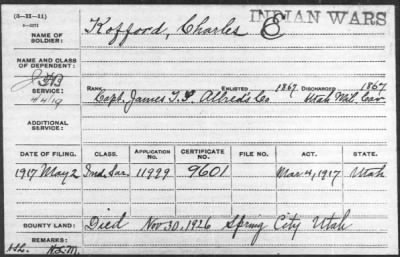 (3-II-11)
INDIAN WARS
NAME OF SOLDIER: Kofford, Charles E
NAME AND CLASS OF DEPENDENT:
SERVICE: 4/4/19
RANK Capt. James T. S. Allred's Co ENLISTED 1867 DISCHARGED 1867 Utah Mil. Cav
ADDITIONAL SERVICE:
DATE OF FILING. CLASS. APPLICATION No. CERTIFICATE NO. FILE NO. ACT. STATE.
1917 May 2 Ind. Sur. 11999 9601 Mar 4, 1917 Utah
BOUNTY LAND: Died Nov. 30, 1926 Spring City Utah
REMARKS: